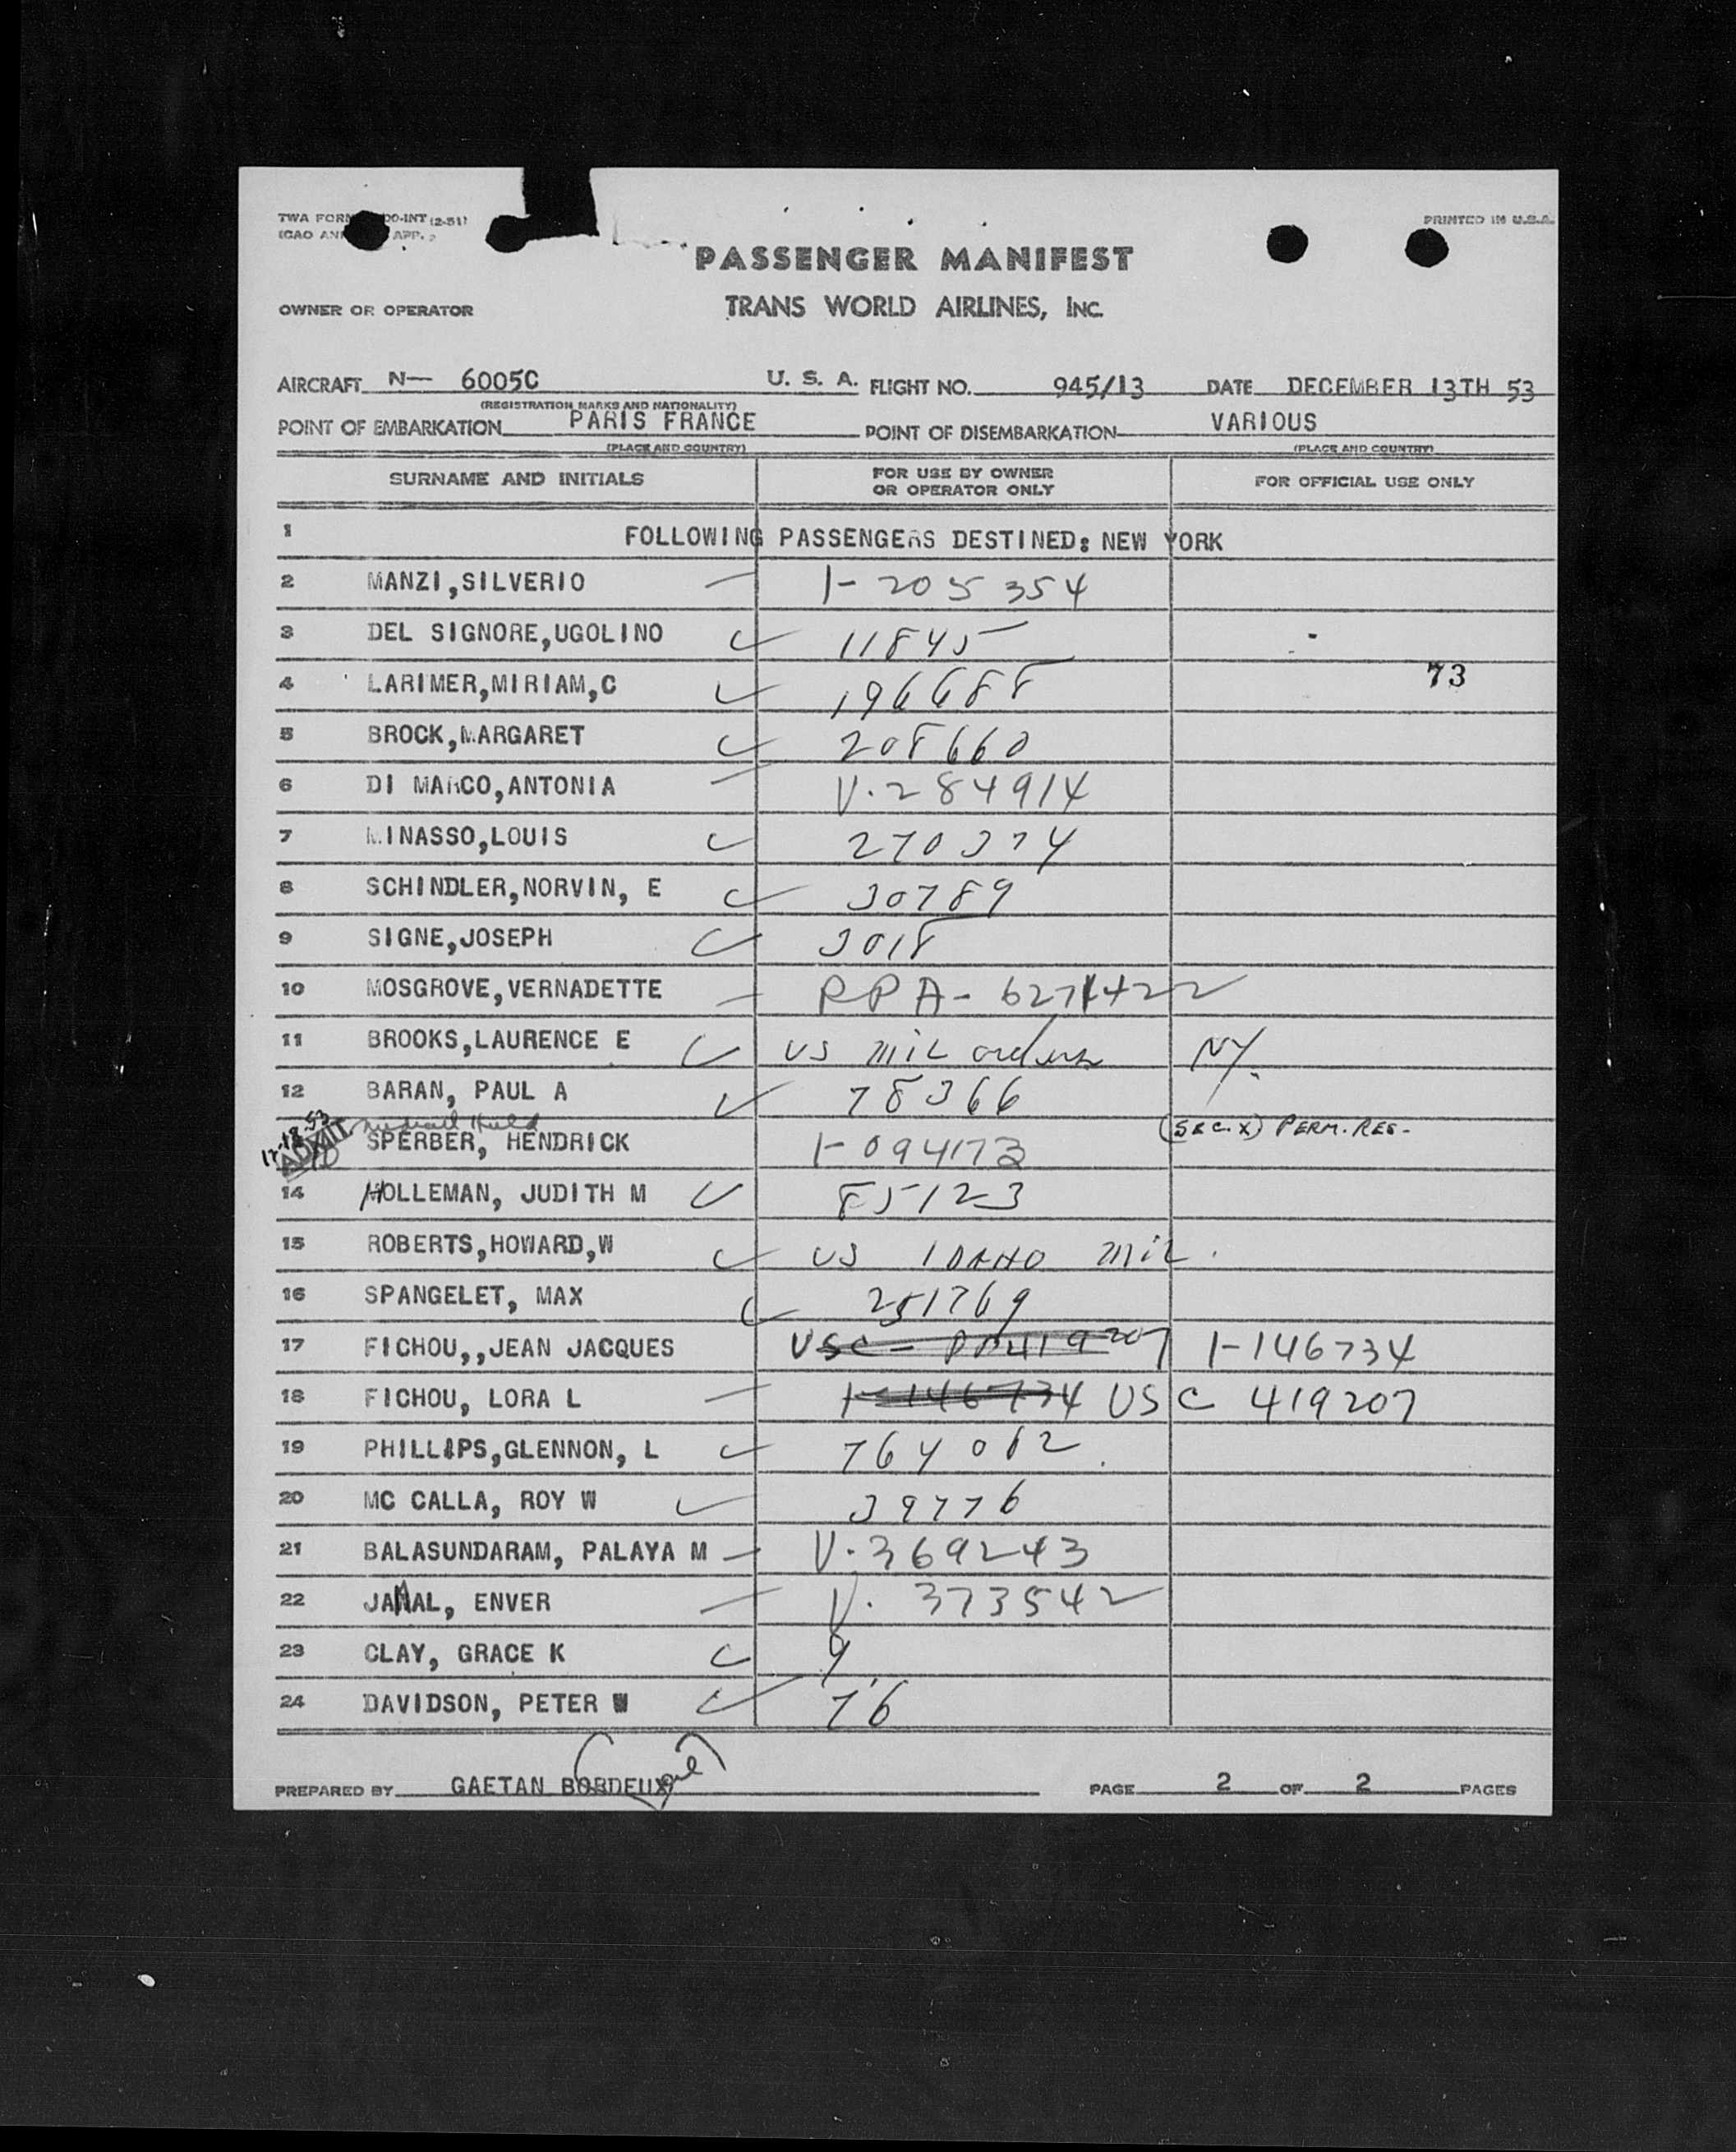 TWA FORM 00-INT (2-51)
ICAO AN APP.
PRINTED IN U.S.A.
PASSENGER MANIFEST
OWNER OR OPERATOR TRANS WORLD AIRLINES, INC.
AIRCRAFT N— 6005C U. S. A. FLIGHT NO. 945/13 DATE DECEMBER 13TH 53
(REGISTRATION MARKS AND NATIONALITY)
POINT OF EMBARKATION PARIS FRANCE POINT OF DISEMBARKATION VARIOUS
(PLACE AND COUNTRY) (PLACE AND COUNTRY)
SURNAME AND INITIALS FOR USE BY OWNER OR OPERATOR ONLY FOR OFFICIAL USE ONLY
1 FOLLOWING PASSENGERS DESTINED: NEW YORK
2 MANZI,SILVERIO — I-205354
3 DEL SIGNORE,UGOLINO ✓ 11845
4 LARIMER,MIRIAM,C ✓ 196688 73
5 BROCK,MARGARET ✓ 208660
6 DI MARCO,ANTONIA — V.284914
7 MINASSO,LOUIS ✓ 270374
8 SCHINDLER,NORVIN, E ✓ 30789
9 SIGNE,JOSEPH ✓ 3018
10 MOSGROVE,VERNADETTE — RPA-6271422
11 BROOKS,LAURENCE E ✓ US MIL orders NY.
12 BARAN, PAUL A ✓ 78366
12-18-53 ADMIT medical Held
SPERBER, HENDRICK I-094173 (SEC. X) PERM. RES.
14 HOLLEMAN, JUDITH M ✓ 85123
15 ROBERTS,HOWARD,W ✓ US IDAHO MIL.
16 SPANGELET, MAX ✓ 251769
17 FICHOU,,JEAN JACQUES USC - PP419207 I-146734
18 FICHOU, LORA L — I-146734 USC 419207
19 PHILLIPS,GLENNON, L ✓ 764082.
20 MC CALLA, ROY W ✓ 39776
21 BALASUNDARAM, PALAYA M — V.369243
22 JAMAL, ENVER — V. 373542
23 CLAY, GRACE K ✓ 9
24 DAVIDSON, PETER W ✓ 76
PREPARED BY GAETAN BORDEUX PAGE 2 OF 2 PAGES